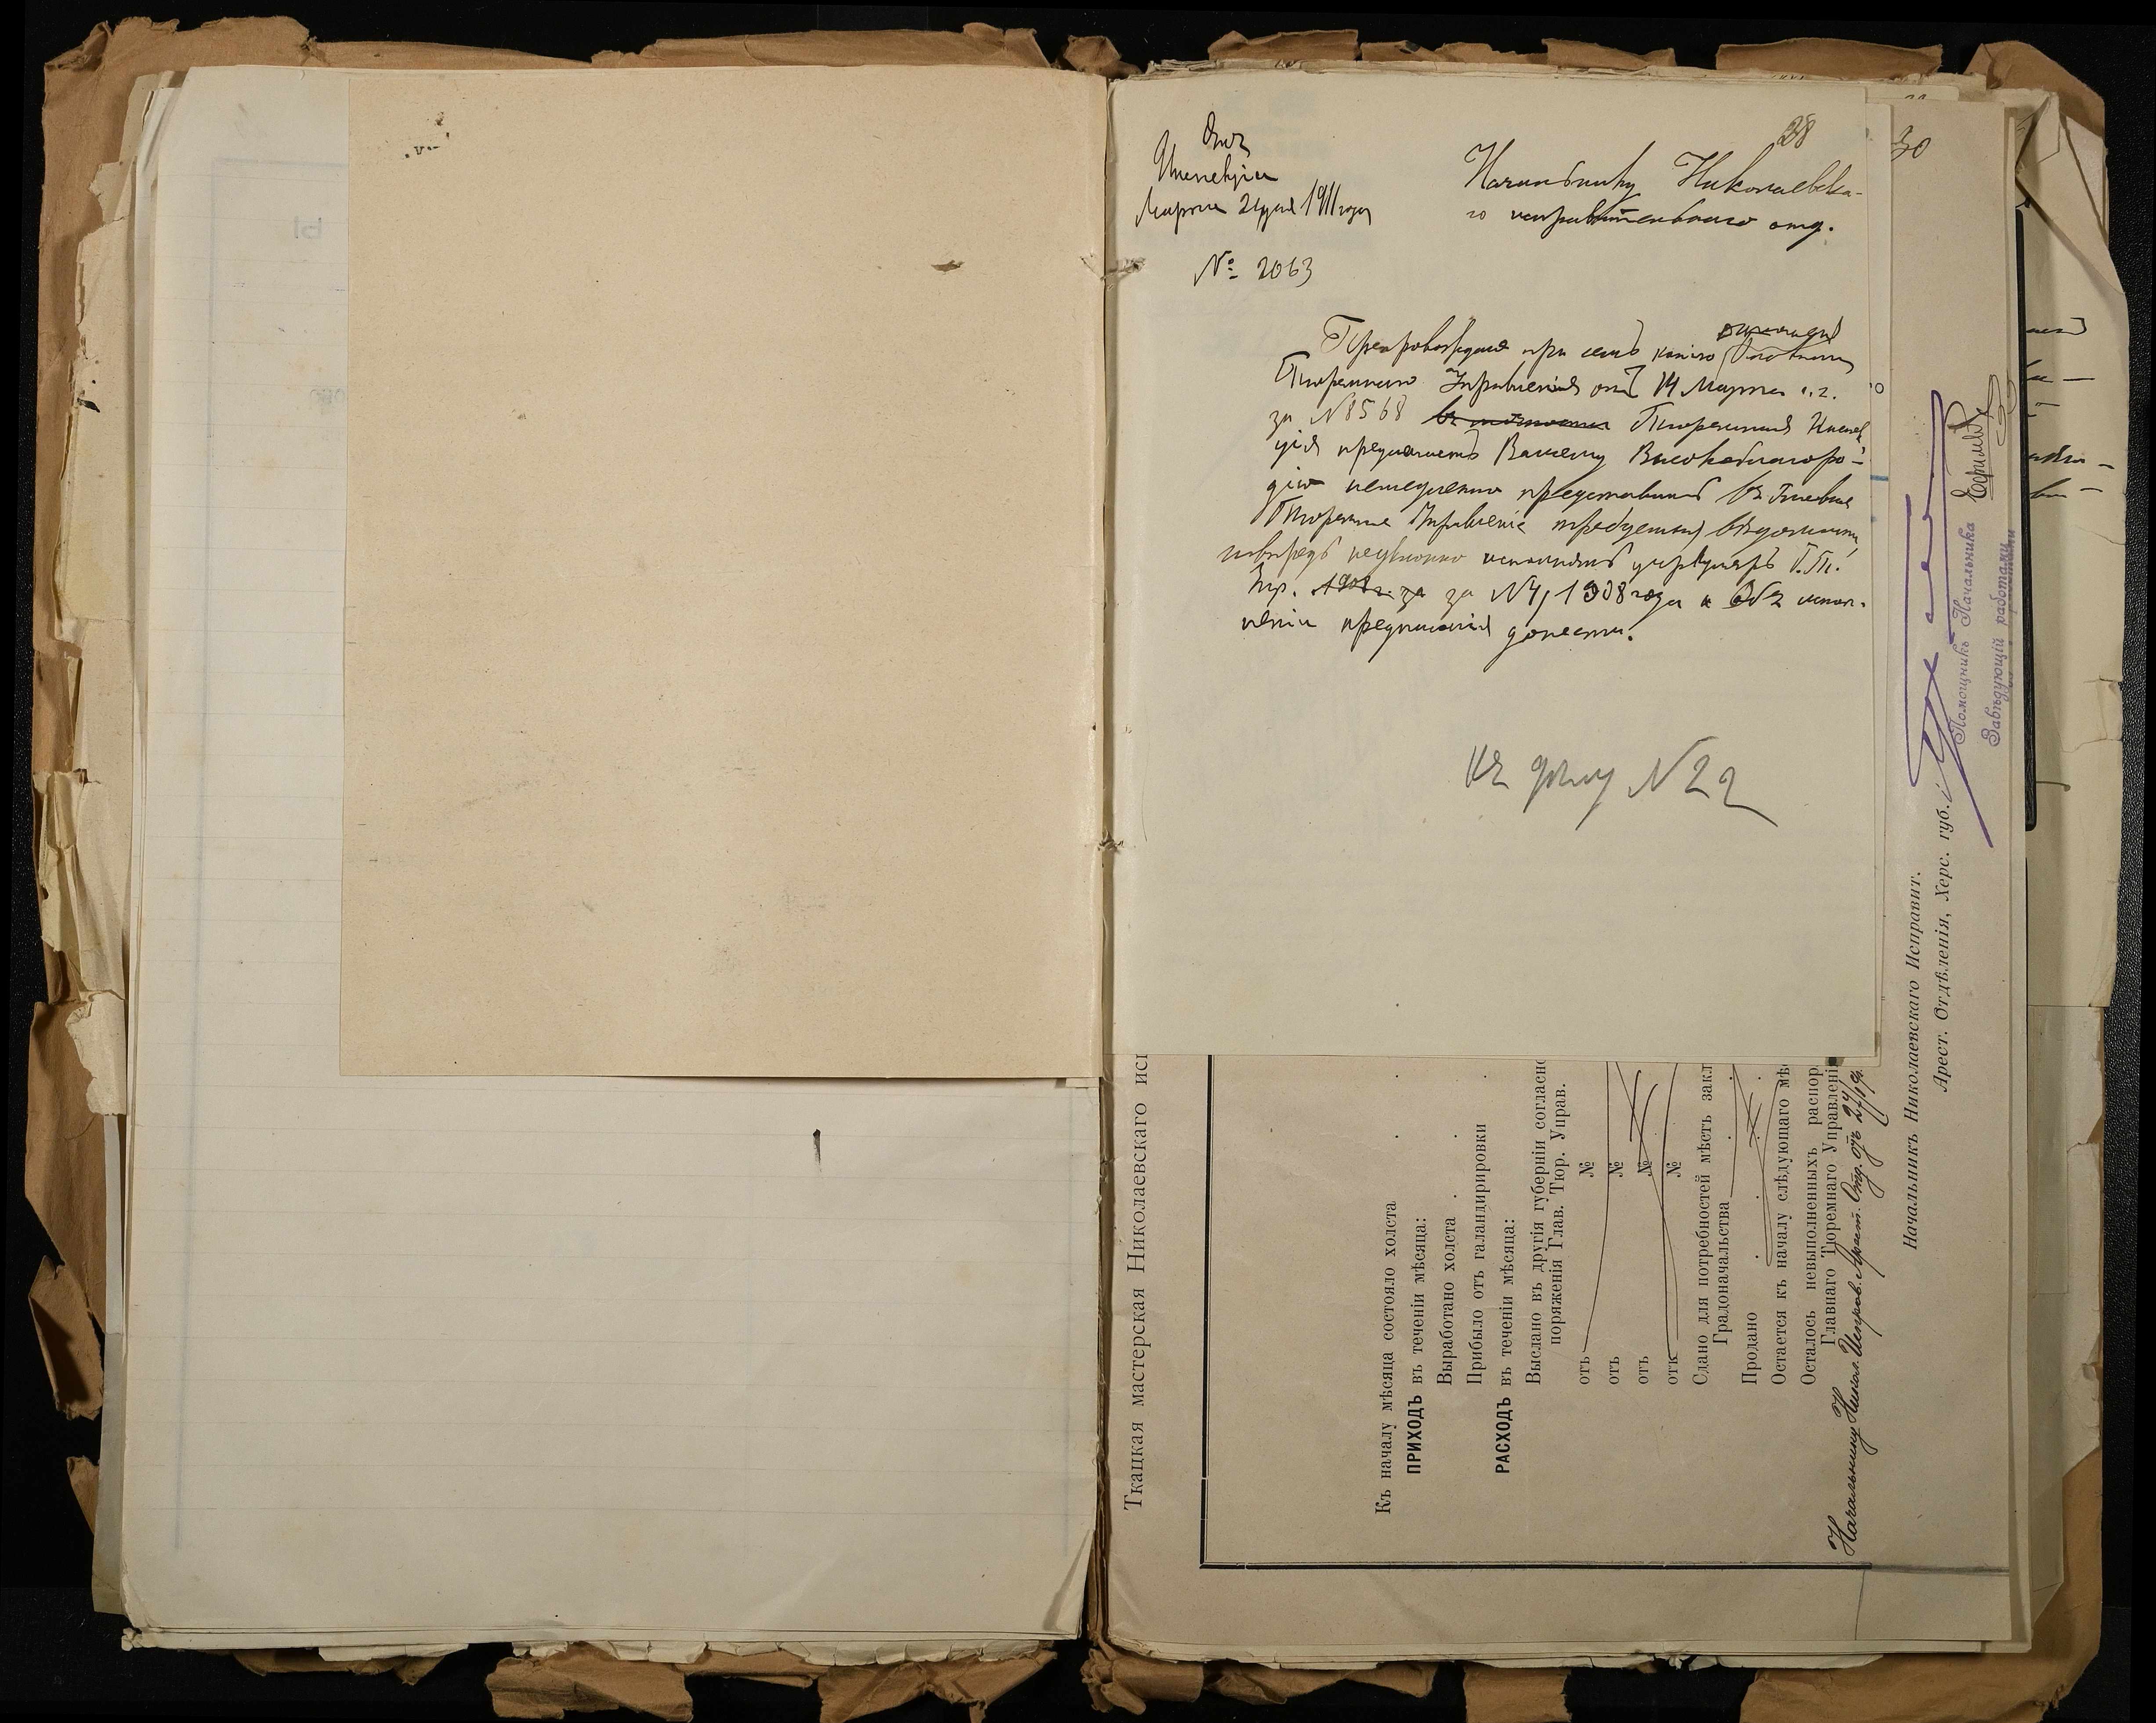 28
Инспекція
Марта 21 дня 1911 года
№ 2063
Начальнику Николаевска-
го исправительнаго отд.
Препровождая при семъ копію
Тюремнаго Управленія отъ 14 Марта с.г.
за №8568 Тюремная Инспек
ція предлагаетъ Вашему Высокоблагоро-
дію немедленно представить въ Главное
Тюремное Управленіе требуемыя вѣдомости,
впредь неуклонно исполнять циркуляръ Г.Т.
Упр. за №4, 1908 года и объ испол-
неніи предписанія донести.
Къ дѣлу №22
30
Ткацкая мастерская Николаевскаго исп
Къ началу мѣсяца состояло холста
ПРИХОДЪ въ теченіи мѣсяца:
Выработано холста
Прибыло отъ галандрировки
РАСХОДЪ въ теченіи мѣсяца:
Выслано въ другія губерніи согласно
поряженія Глав. Тюр. Управ.
отъ №
отъ №
отъ №
отъ №
Сдано для потребностей мѣстъ закл
Градоначальства
Продано
Остается къ началу слѣдующаго мѣ
Осталось невыполненныхъ распор
Главнаго Тюремнаго Управленія
Начальнику Никол. Исправ. Арест. Отд. отъ
Начальникъ Николаевскаго Исправит.
Арест. Отдѣленія, Херс. губ.
Помощникъ Начальника
Завѣдующій работами